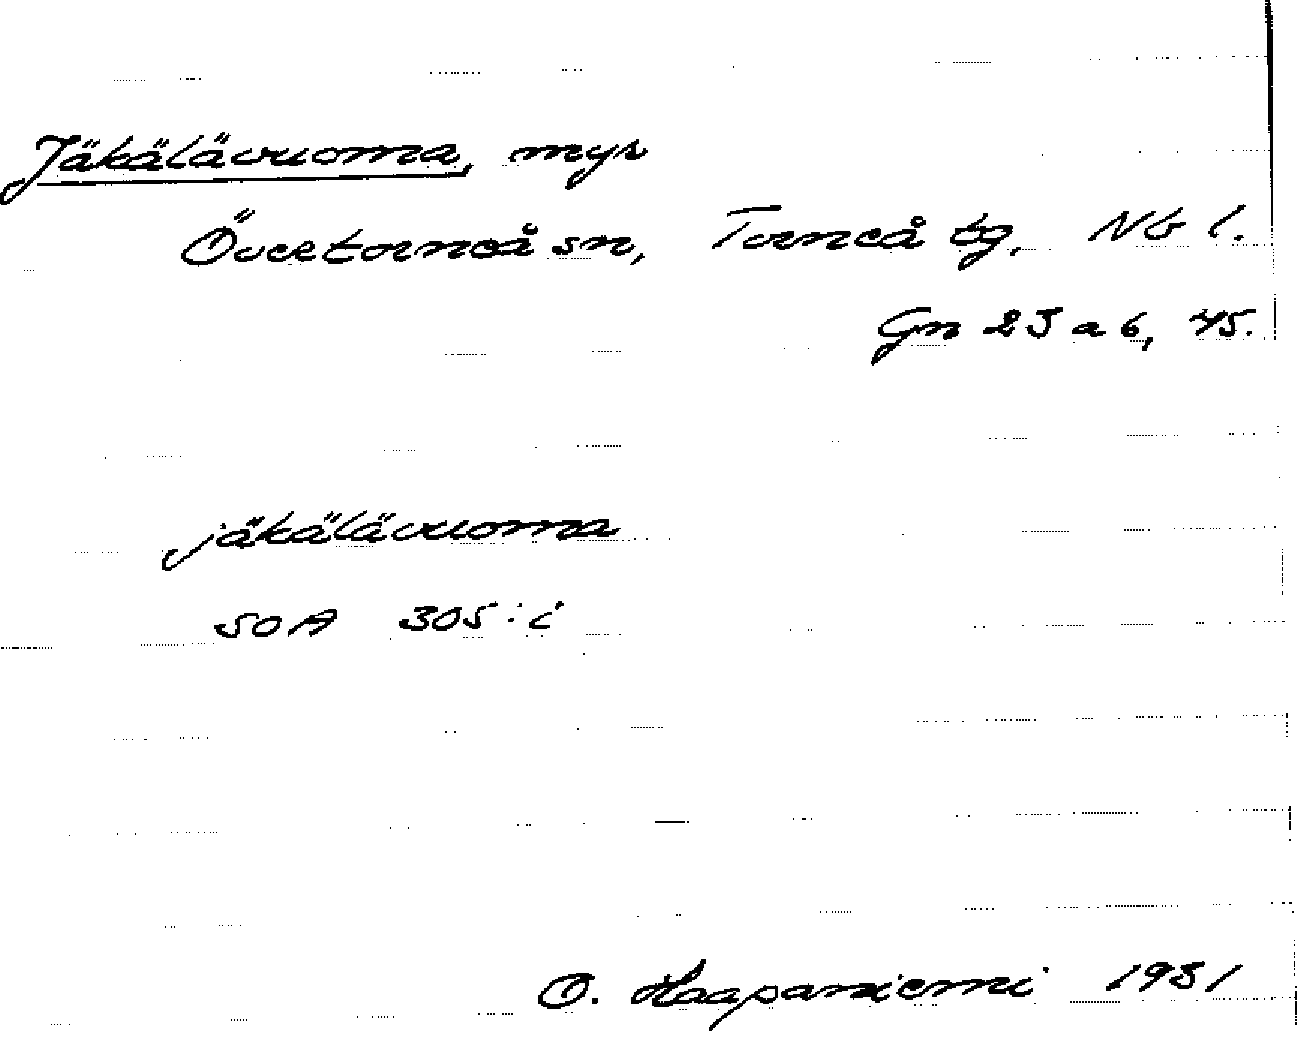 Jäkälävuoma, myr
Övertorneå sn, Torneå tg, Nb l.
Gn 23 a 6, 45.
jäkälävuoma
SOA 305:i
O. Haapaniemi 1931